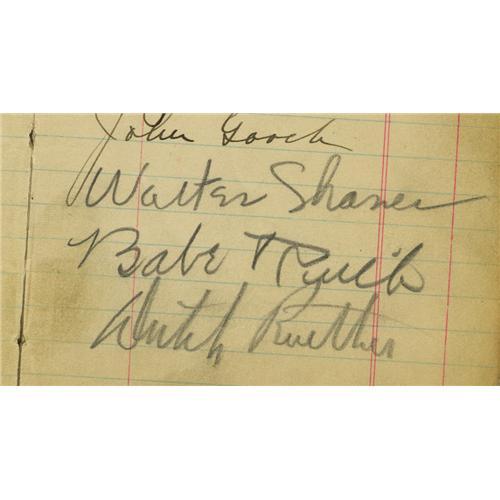 John Gooch
Walter Shaner
Babe Ruth
Dutch Ruether